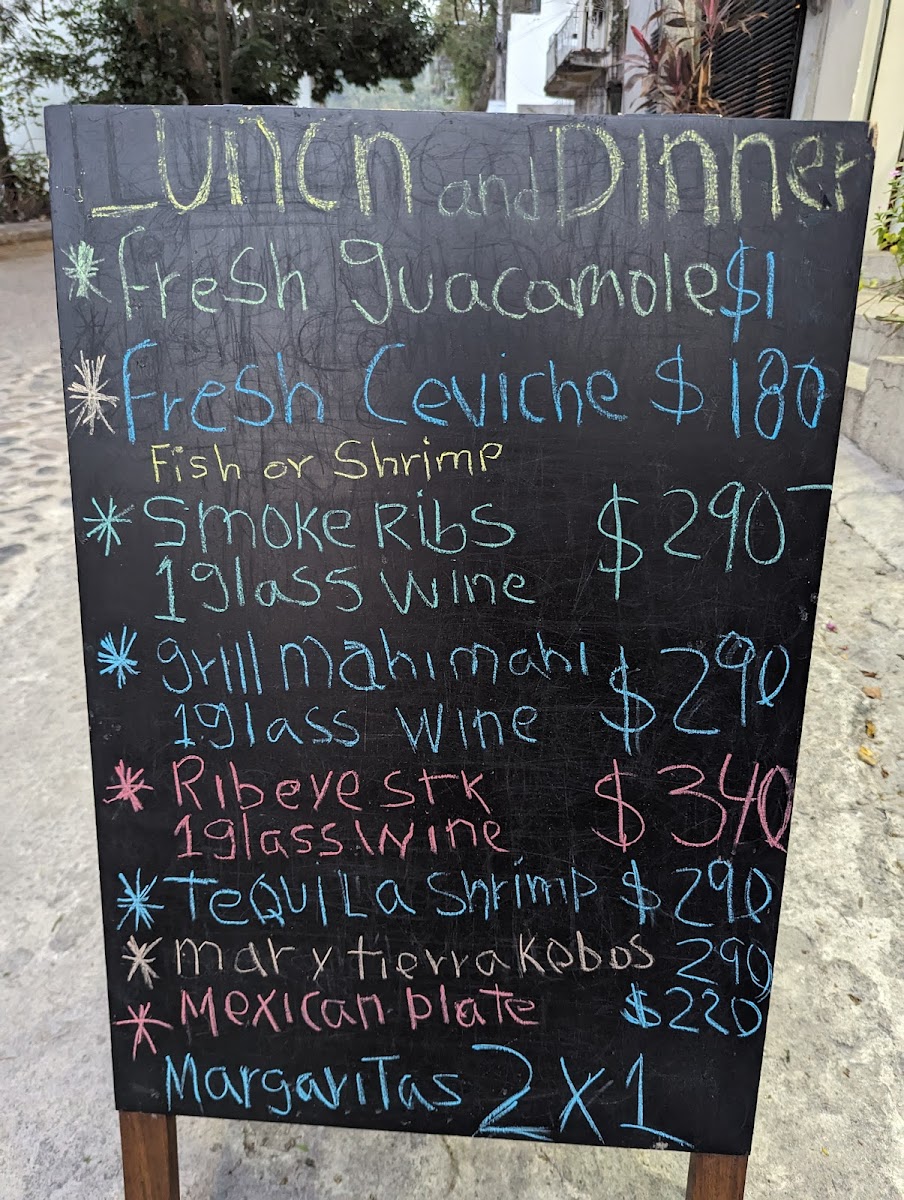 Lunch and Dinner
* Fresh guacamole $1
* Fresh Ceviche $180
Fish or Shrimp
* Smoke Ribs $290-
1 glass wine
* grill mahi mahi $290
1 glass wine
* Ribeye stk $340
1 glass wine
* TeQUILa Shrimp $290
* mar y tierra Kobos 290
* Mexican plate $220
Margaritas 2x1